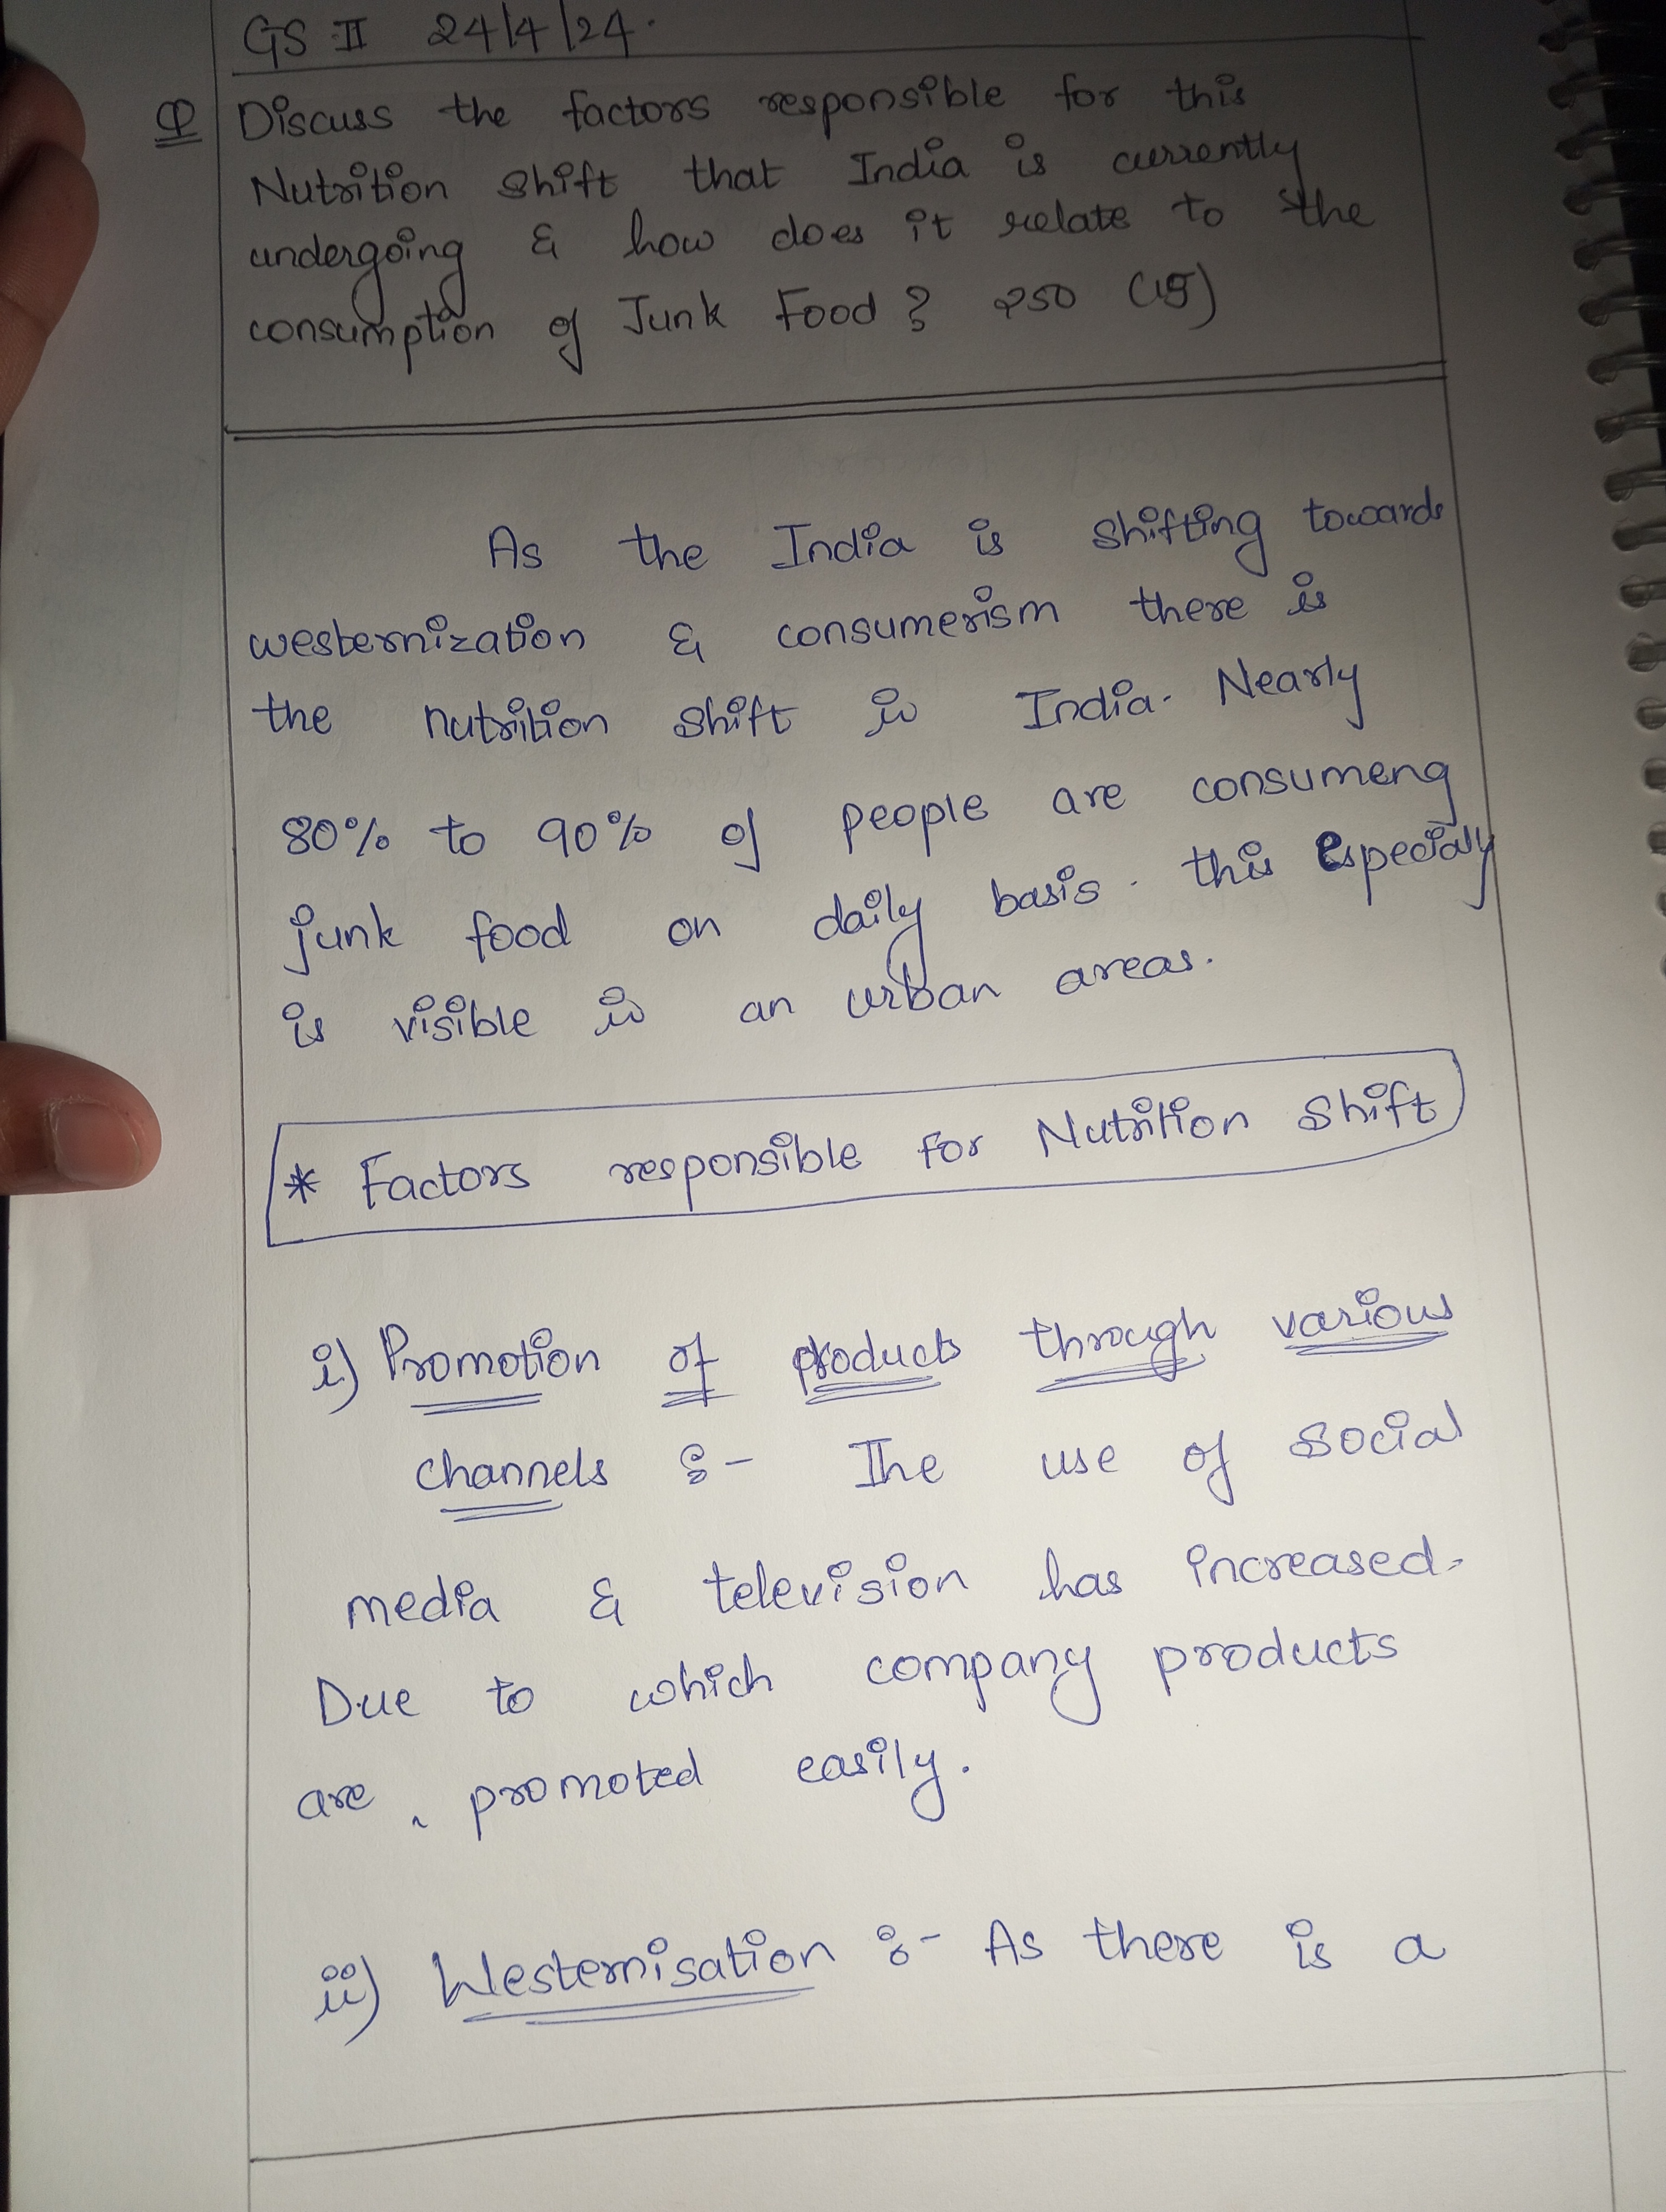 GS II 24/4/24.
Q Discuss the factors responsible for this
Nutrition shift that India is currently
undergoing & how does it relate to the
consumption of Junk Food? 250 (15)
As the India is shifting towards
westernization & consumerism there is
the nutrition shift in India. Nearly
80% to 90% of people are consumeng
junk food on daily basis. this especialy
is visible in an urban areas.
* Factors responsible for Nutrition Shift
i) Promotion of products through various
channels :- The use of social
media & television has increased.
Due to which company products
are promoted easily.
ii) Westernisation :- As there is a